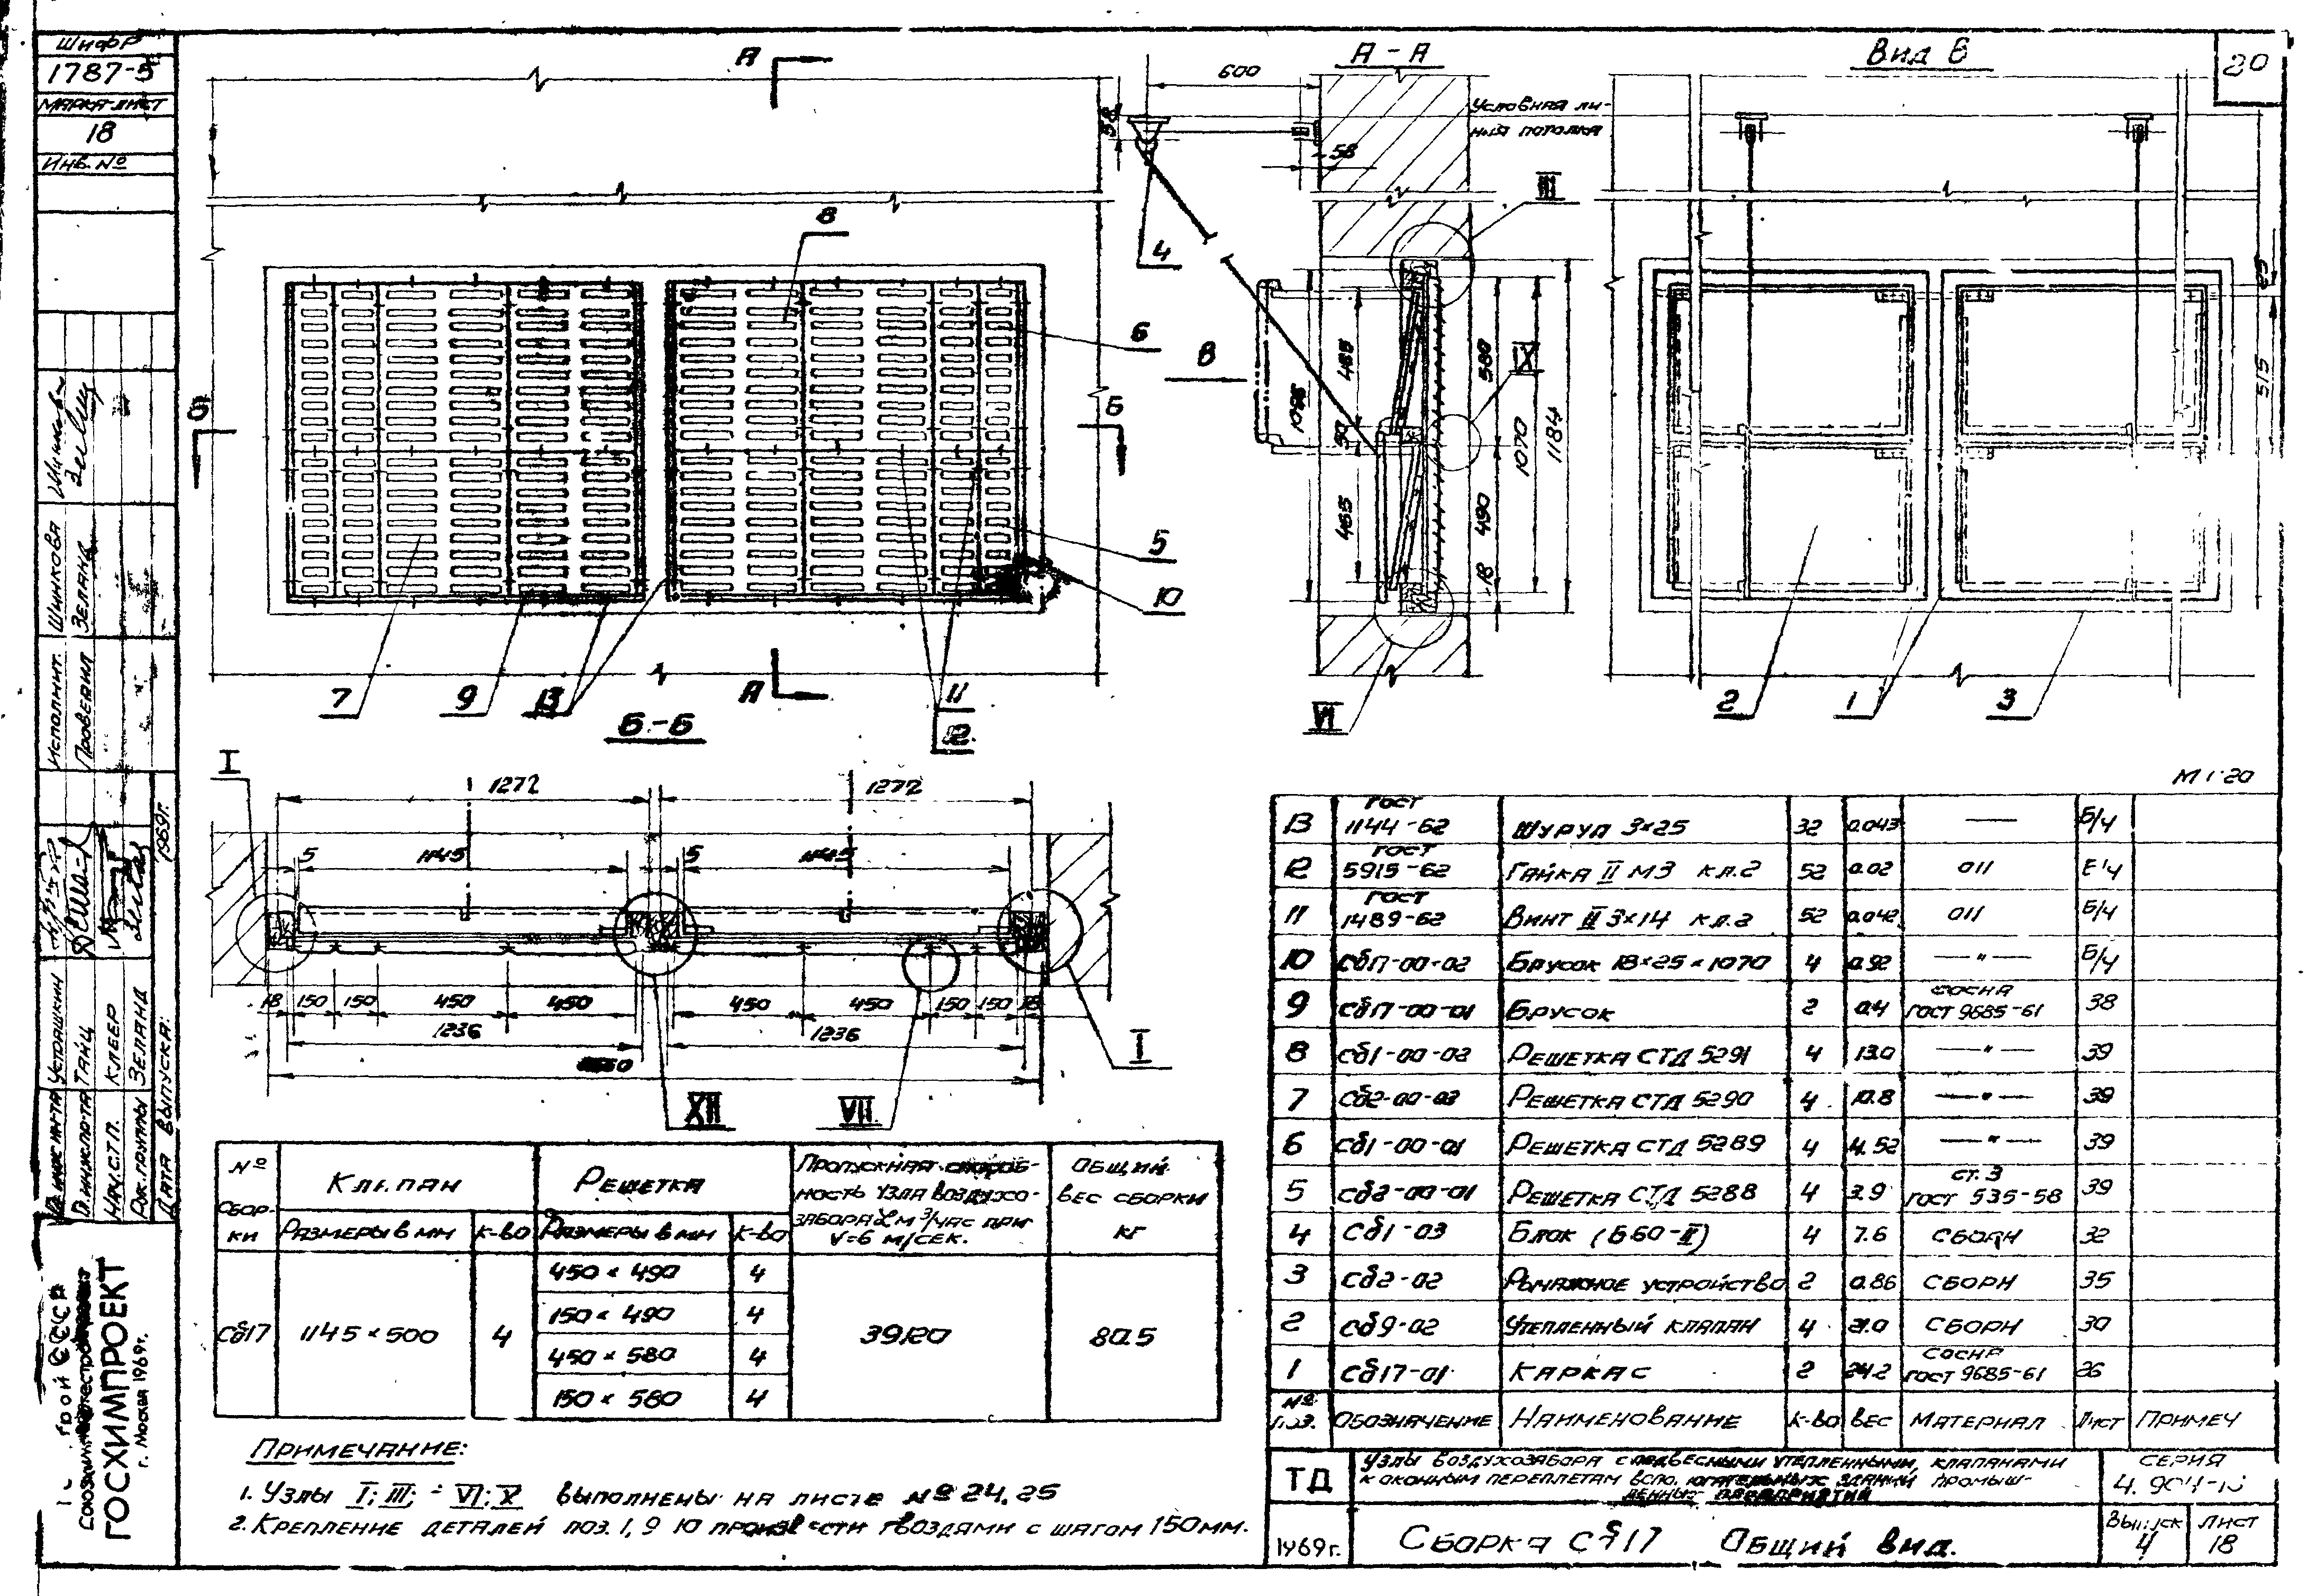 Шифр
1787-5
Марка-лист
18
Инв. №
20
А
А - А
Вид В
600
Условная ли-
ния потолка
58
58
III
8
4
6
В
Б
Б
5
10
7
9
13
А
11
12
1095
465
50
465
580
490
18
1070
1184
IX
VI
25
515
2
1
3
Б-Б
I
1272
1272
5
1145
5
1145
18
150
150
450
450
450
450
150
150
18
1236
1236
I
XII
VII
М 1:20
№ сборки
Клапан
Решетка
Пропускная способ-
ность узла воздухо-
забора L м³/час при
V=6 м/сек.
Общий
вес сборки
кг
Размеры в мм
к-во
Размеры в мм
к-во
Сб17
1145 × 500
4
450 × 490
4
150 × 490
4
450 × 580
4
150 × 580
4
39120
80.5
Примечание:
1. Узлы I; III; - VI; X выполнены на листе № 24, 25
2. Крепление деталей поз. 1, 9 10 произвести гвоздями с шагом 150мм.
13 ГОСТ 1144-62 Шуруп 3×25 32 0.043 — Б/ч
12 ГОСТ 5915-62 Гайка II М3 кл.2 52 0.02 011 Б/ч
11 ГОСТ 1489-62 Винт III 3×14 кл.2 52 0.042 011 Б/ч
10 Сб17-00-02 Брусок 18×25×1070 4 0.92 —"— Б/ч
9 Сб17-00-01 Брусок 2 0.4 сосна ГОСТ 9685-61 38
8 Сб1-00-02 Решетка СТД 5291 4 13.0 —"— 39
7 Сб2-00-03 Решетка СТД 5290 4 10.8 —"— 39
6 Сб1-00-01 Решетка СТД 5289 4 4.52 —"— 39
5 Сб2-00-01 Решетка СТД 5288 4 3.9 ст. 3 ГОСТ 535-58 39
4 Сб1-03 Блок (Б60-II) 4 7.6 сборн 32
3 Сб2-02 Рычажное устройство 2 0.86 сборн 35
2 Сб9-02 Утепленный клапан 4 21.0 сборн 30
1 Сб17-01 Каркас 2 24.2 сосна ГОСТ 9685-61 26
№ поз. Обозначение Наименование к-во вес Материал Лист Примеч
ТД
Узлы воздухозабора с подвесными утепленными клапанами
к оконным переплетам вспомогательных зданий промыш-
ленных предприятий
Серия
1969г.
Сборка Сб17 Общий вид.
Выпуск
4
Лист
18
Исполнит. Шишкова
Проверил Зеланд
Гл. инж. ин-та Устюшкин
Гл. инж. пр-та Танц
Нач. С.Т.П. Клеер
Рук. группы Зеланд
Дата выпуска: 1969г.
ГОСХИМПРОЕКТ
г. Москва 1969г.